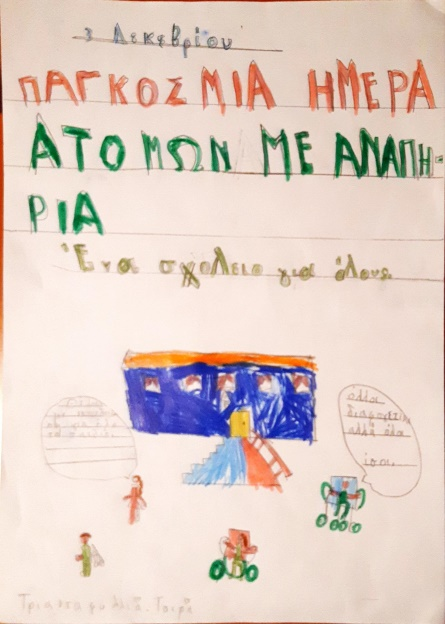 3 Δεκεβρίου
ΠΑΓΚΟΣΜΙΑ ΗΜΕΡΑ
ΑΤΟΜΩΝ ΜΕ ΑΝΑΠΗ-
ΡΙΑ
Ένα σχολείο για όλους
όλοι
διαφ-ετικοί
αλλά όλοι
ίσοι